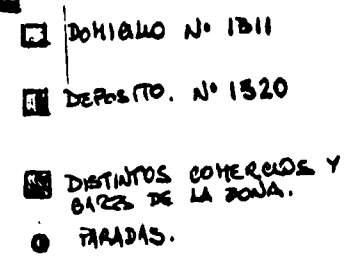 DOMICILIO Nº 1311
DEPOSITO. Nº 1320
DISTINTOS COMERCIOS Y
BARES DE LA ZONA.
PARADAS.